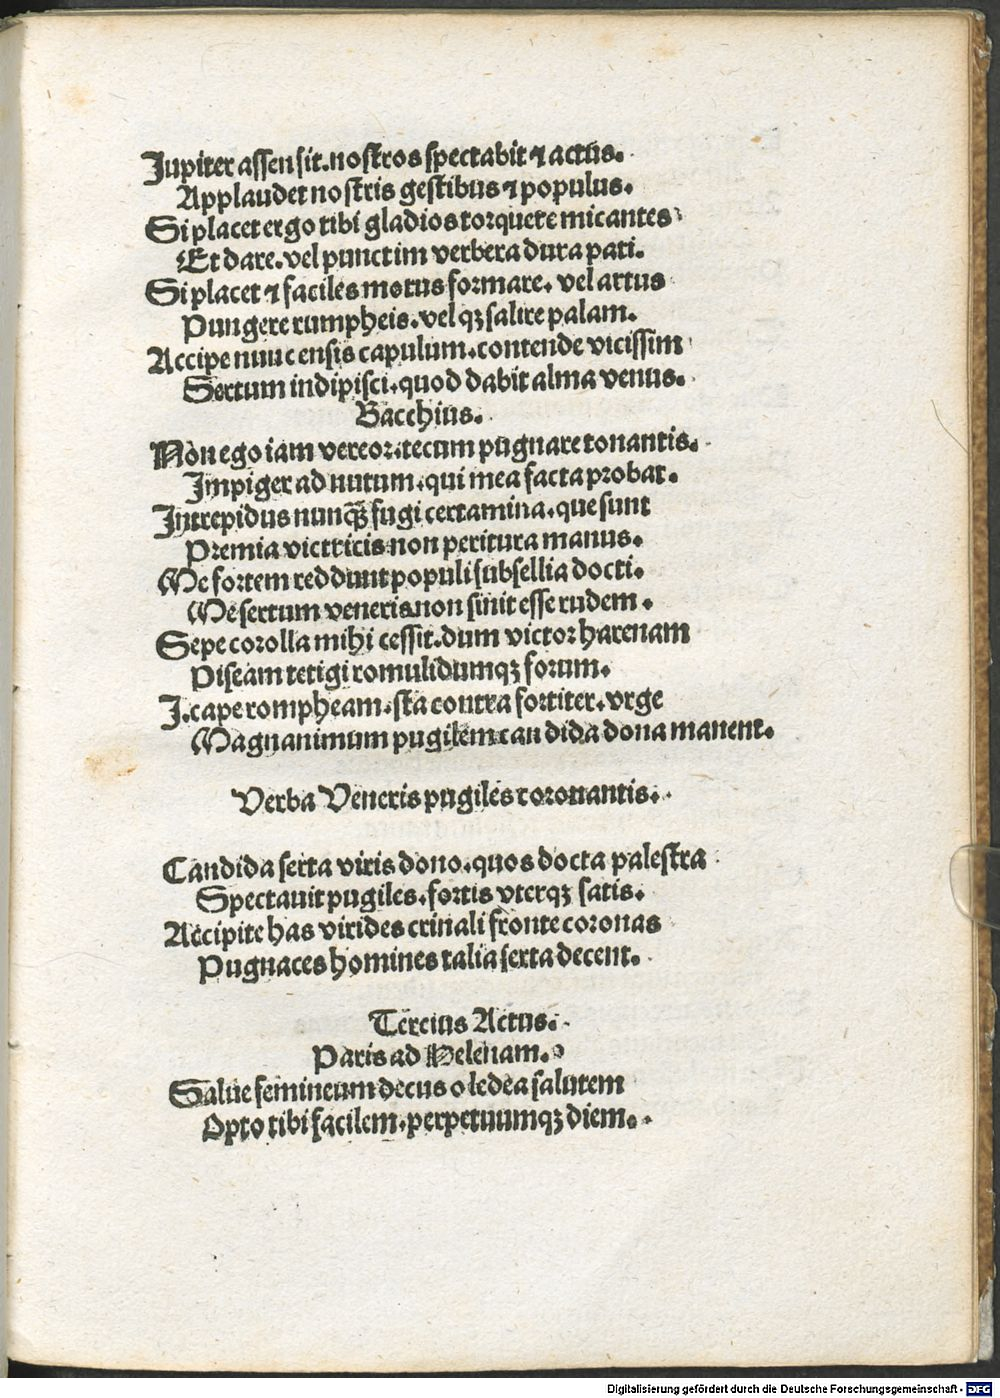 Jupiter assensit. nostros spectabit ⁊ actus.
Applaudet nostris gestibus ⁊ populus.
Si placet ergo tibi gladios torquere micantes
Et dare. vel punctim verbera dura pati.
Si placet ⁊ faciles motus formare. vel artus
Pungere rumpheis. vel qꝫ salire palam.
Accipe nunc ensis capulum. contende vicissim
Sertum indipisci. quod dabit alma venus.
Bacchius.
Non ego iam vereor. tecum pugnare tonantis.
Impiger ad nutum. qui mea facta probat.
Intrepidus nunqꝫ̃ fugi certamina. que sunt
Premia victricis non peritura manus.
Me fortem reddunt populi subsellia docti.
Me sertum veneris non sinit esse rudem.
Sepe corolla mihi cessit. dum victor harenam
Piseam tetigi romulidumqꝫ forum.
I. cape rompheam. sta contra fortiter. vrge
Magnanimum pugilem candida dona manent.
Verba Veneris pugiles coronantis.
Candida serta viris dono. quos docta palestra
Spectauit pugiles. fortis vterqꝫ satis.
Accipite has virides crinali fronte coronas
Pugnaces homines talia serta decent.
Tercius Actus.
Paris ad Helenam.
Salue femineum decus o ledea salutem
Opto tibi facilem. perpetuumqꝫ diem.
Digitalisierung gefördert durch die Deutsche Forschungsgemeinschaft - DFG